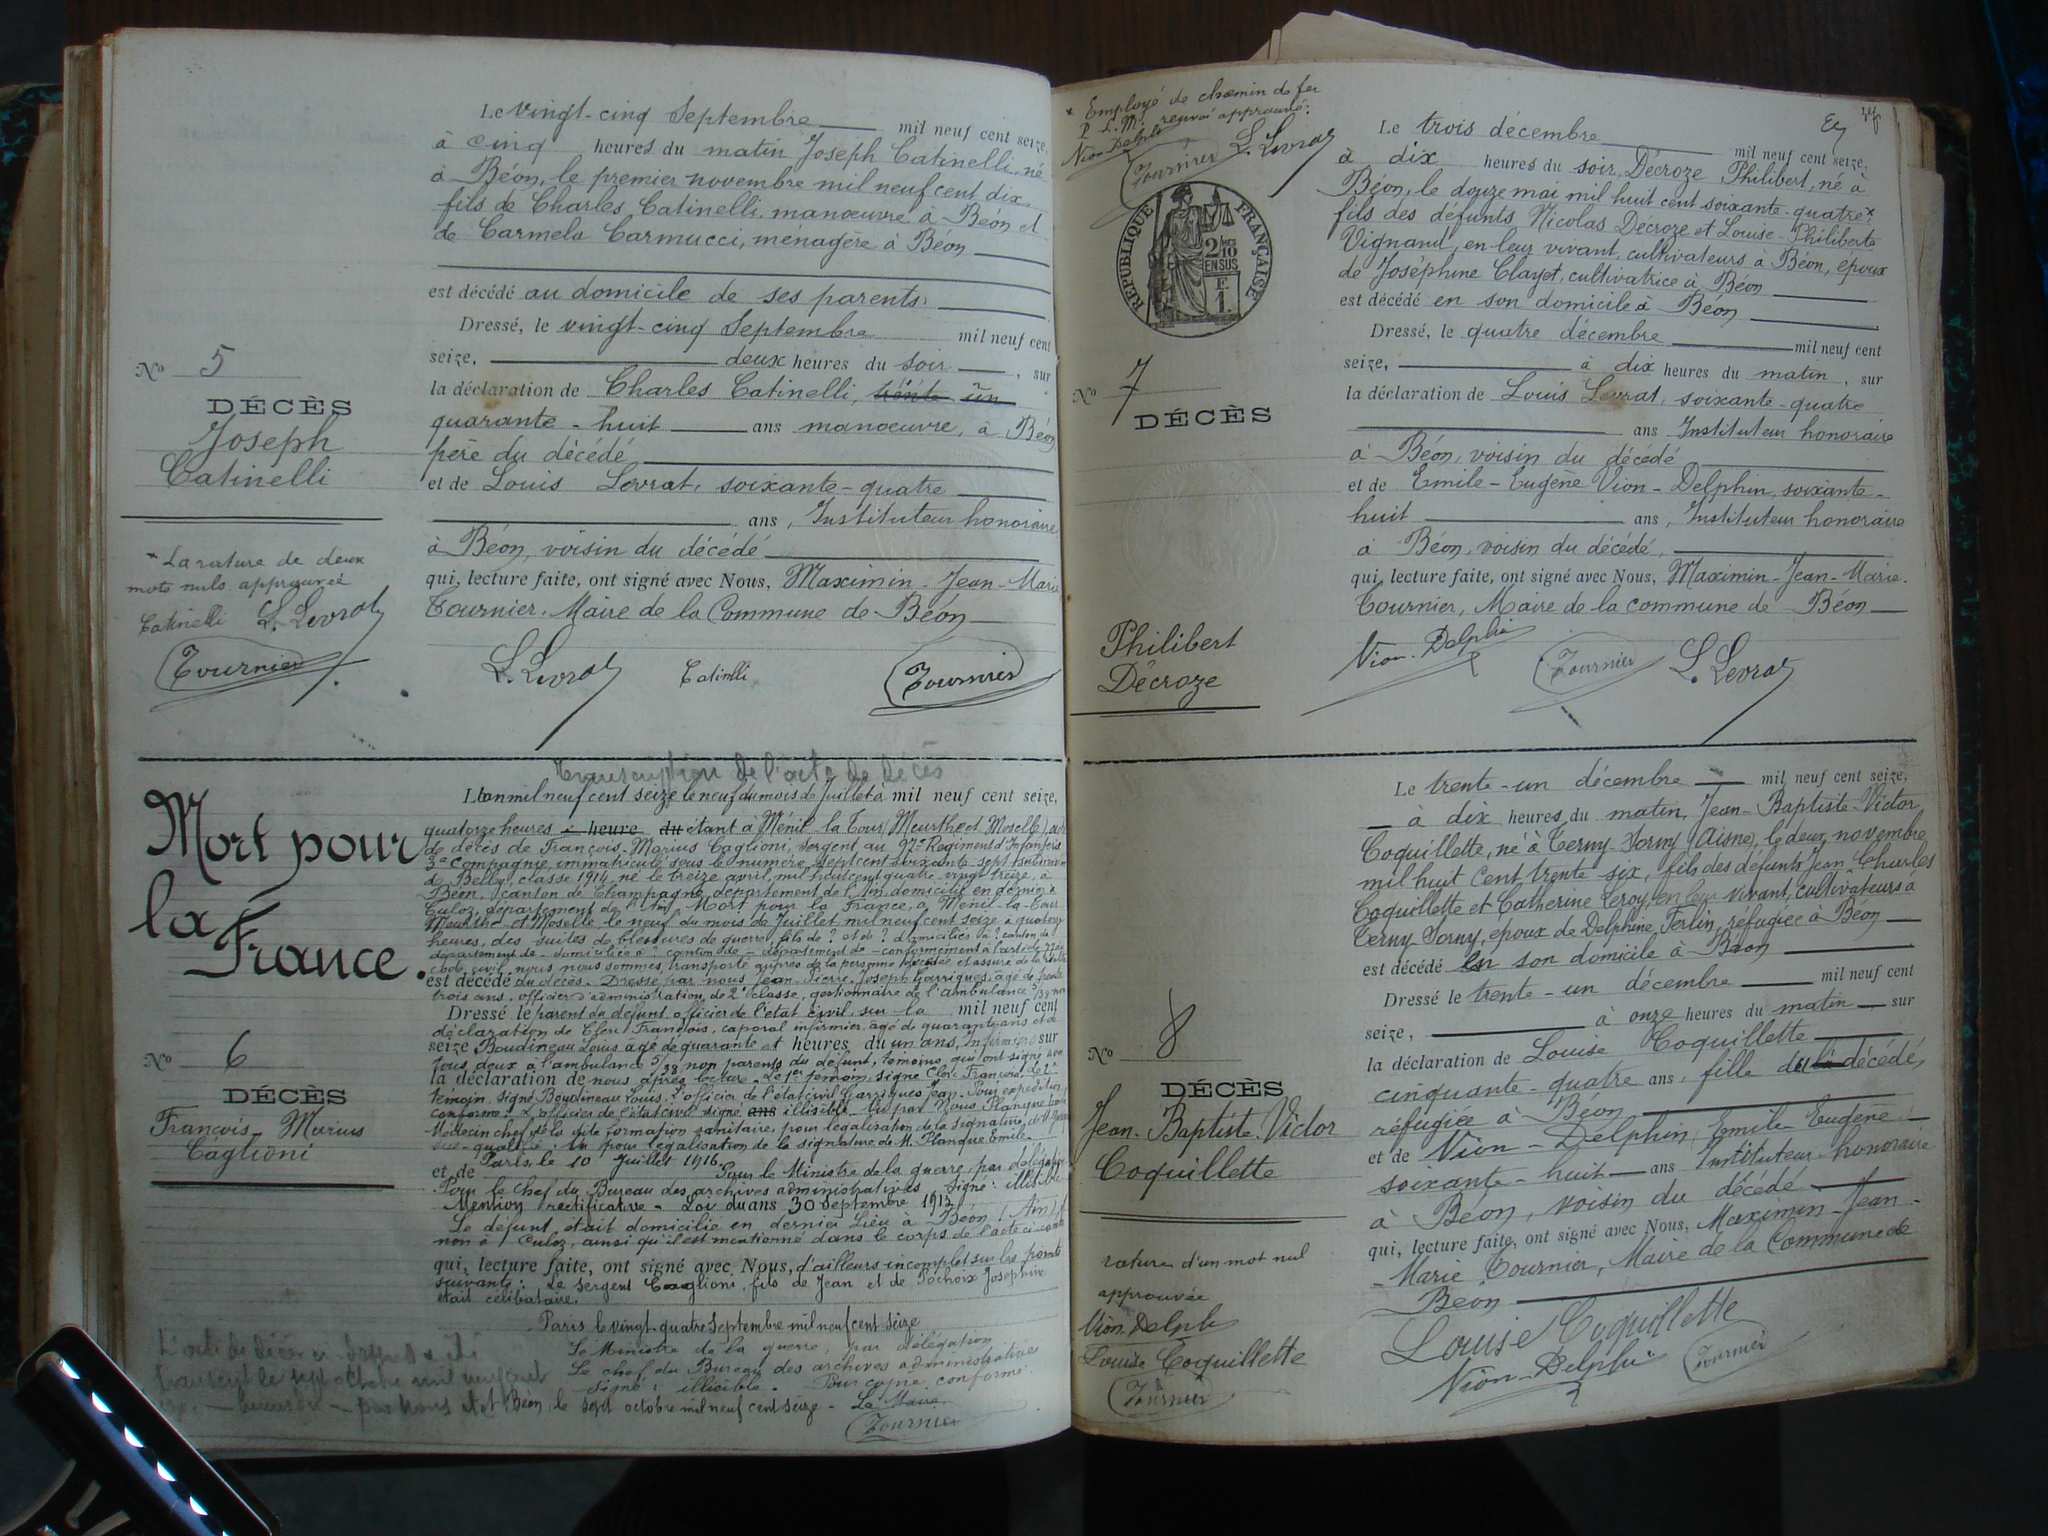 Le vingt-cinq Septembre mil neuf cent seize,
à cinq heures du matin Joseph Catinelli, né
à Béon, le premier novembre mil neuf cent dix,
fils de Charles Catinelli, manœuvre à Béon et
de Carmela Carmucci, ménagère à Béon
est décédé au domicile de ses parents.
Dressé, le vingt-cinq Septembre mil neuf cent
seize, deux heures du soir, sur
la déclaration de Charles Catinelli, trente un
quarante-huit ans manœuvre, à Béon,
père du décédé
et de Louis Levrat, soixante-quatre
ans, Instituteur honoraire
à Béon, voisin du décédé
qui, lecture faite, ont signé avec Nous, Maximin-Jean-Marie
Tournier, Maire de la Commune de Béon
L. Levrat Catinelli Tournier
No 5
DÉCÈS
Joseph
Catinelli
La rature de deux
mots nuls approuvée
Catinelli L. Levrat
Tournier
Transcription de l'acte de décès
Mort pour
la
France.
No 6
DÉCÈS
François-Marius
Caglioni
L'an mil neuf cent seize le neuf du mois de Juillet à mil neuf cent seize,
quatorze heures heure du étant à Ménil la Tour (Meurthe et Moselle), acte
de décès de François-Marius Caglioni, Sergent au 97e Régiment d'Infanterie
3e Compagnie, immatriculé sous le numéro sept cent soixante-sept
de Belley, classe 1914, né le treize avril, mil huit cent quatre-vingt treize, à
Béon, canton de Champagne, département de l'Ain, domicilié en dernier à
Culoz, département de l'Ain. Mort pour la France, à Ménil-la-Tour
Meurthe et Moselle le neuf du mois de Juillet mil neuf cent seize à quatorze
heures, des suites de blessures de guerre, fils de ? et de ? domiciliés à ? canton de
département de - domicilié à ? canton de - département de - conformément à l'article 77 du
code civil, nous nous sommes transporté auprès de la personne décédée et assuré de la
est décédé du décès. Dressé par nous Jean-Pierre-Joseph Garrigues, âgé de trente
trois ans, officier d'administration de 2e classe, gestionnaire de l'ambulance 5/38 non
Dressé, le parent du défunt officier de l'état civil, sur la mil neuf cent
déclaration de Clerc François, caporal infirmier, âgé de quarante ans et de
seize Boudineau Louis âgé de quarante et heures du un ans, infirmier sur
tous deux à l'ambulance 5/38 non parents du défunt, témoins, qui ont signé avec
la déclaration de nous après lecture. Le 1er témoin signé Clerc François, le 2e
témoin, signé Boudineau Louis. L'officier de l'état civil Garrigues Jean. Pour expédition
conforme : L'officier de l'état civil signé ans illisible. Vu par Nous Planque
Médecin chef de la dite formation sanitaire, pour légalisation de la signature de M
sus-qualifié : Vu pour légalisation de la signature de M. Planque Emile.
et de Paris, le 10 Juillet 1916. Pour le Ministre de la guerre par délégation
Pour le Chef du Bureau des archives administratives signé : illisible
Mention rectificative - Loi du ans 30 Septembre 1915
Le défunt était domicilié en dernier lieu à Béon (Ain) et
non à Culoz, ainsi qu'il est mentionné dans le corps de l'acte ci-contre
qui, lecture faite, ont signé avec Nous, d'ailleurs incomplet sur les points
suivants : Le Sergent Caglioni, fils de Jean et de Pochoix Joséphine
était célibataire.
Paris le vingt-quatre Septembre mil neuf cent seize
Le Ministre de la guerre, par délégation
Le chef du Bureau des archives administratives
signé : illisible. Pour copie conforme.
Béon, le sept octobre mil neuf cent seize - Le Maire
Tournier
L'acte de décès ci-dessus a été
transcrit le sept octobre mil neuf cent
* Employé de chemin de fer
P. L. M. renvoi approuvé :
Vion-Delphin
Tournier L. Levrat
RÉPUBLIQUE FRANÇAISE
2/10
EN SUS
F.
1.
No 7
DÉCÈS
Philibert
Décroze
Le trois décembre mil neuf cent seize,
à dix heures du soir, Décroze Philibert, né à
Béon, le douze mai mil huit cent soixante-quatre*
fils des défunts Nicolas Décroze et Louise-Philiberte
Vignand, en leur vivant, cultivateurs à Béon, époux
de Joséphine Clayet, cultivatrice à Béon
est décédé en son domicile à Béon
Dressé, le quatre décembre mil neuf cent
seize, à dix heures du matin, sur
la déclaration de Louis Levrat, soixante-quatre
ans Instituteur honoraire
à Béon, voisin du décédé
et de Emile-Eugène Vion-Delphin, soixante-
huit ans, Instituteur honoraire
à Béon, voisin du décédé,
qui, lecture faite, ont signé avec Nous, Maximin-Jean-Marie
Tournier, Maire de la commune de Béon
Vion-Delphin Tournier L. Levrat
No 8
DÉCÈS
Jean-Baptiste-Victor
Coquillette
rature d'un mot nul
approuvée
Vion-Delphin
Louise Coquillette
Tournier
Le trente-un décembre mil neuf cent seize,
à dix heures du matin, Jean-Baptiste-Victor
Coquillette, né à Terny-Sorny (Aisne), le deux novembre
mil huit cent trente-six, fils des défunts Jean-Charles
Coquillette et Catherine Leroy, en leur vivant, cultivateurs à
Terny-Sorny, époux de Delphine Ferlin, réfugiée à Béon
est décédé en son domicile à Béon
Dressé le trente-un décembre mil neuf cent
seize, à onze heures du matin sur
la déclaration de Louise Coquillette
cinquante-quatre ans, fille du la décédé,
réfugiée à Béon
et de Vion-Delphin, Emile Eugène
soixante-huit ans Instituteur honoraire
à Béon, voisin du décédé
qui, lecture faite, ont signé avec Nous, Maximin-Jean-
Marie Tournier, Maire de la Commune de
Béon
Louise Coquillette
Vion-Delphin Tournier